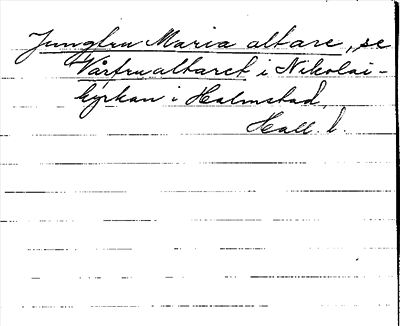 Jungfru Maria altare, se
Vårfrualtaret i Nikolai-
kyrkan i Halmstad,
Hall. l.